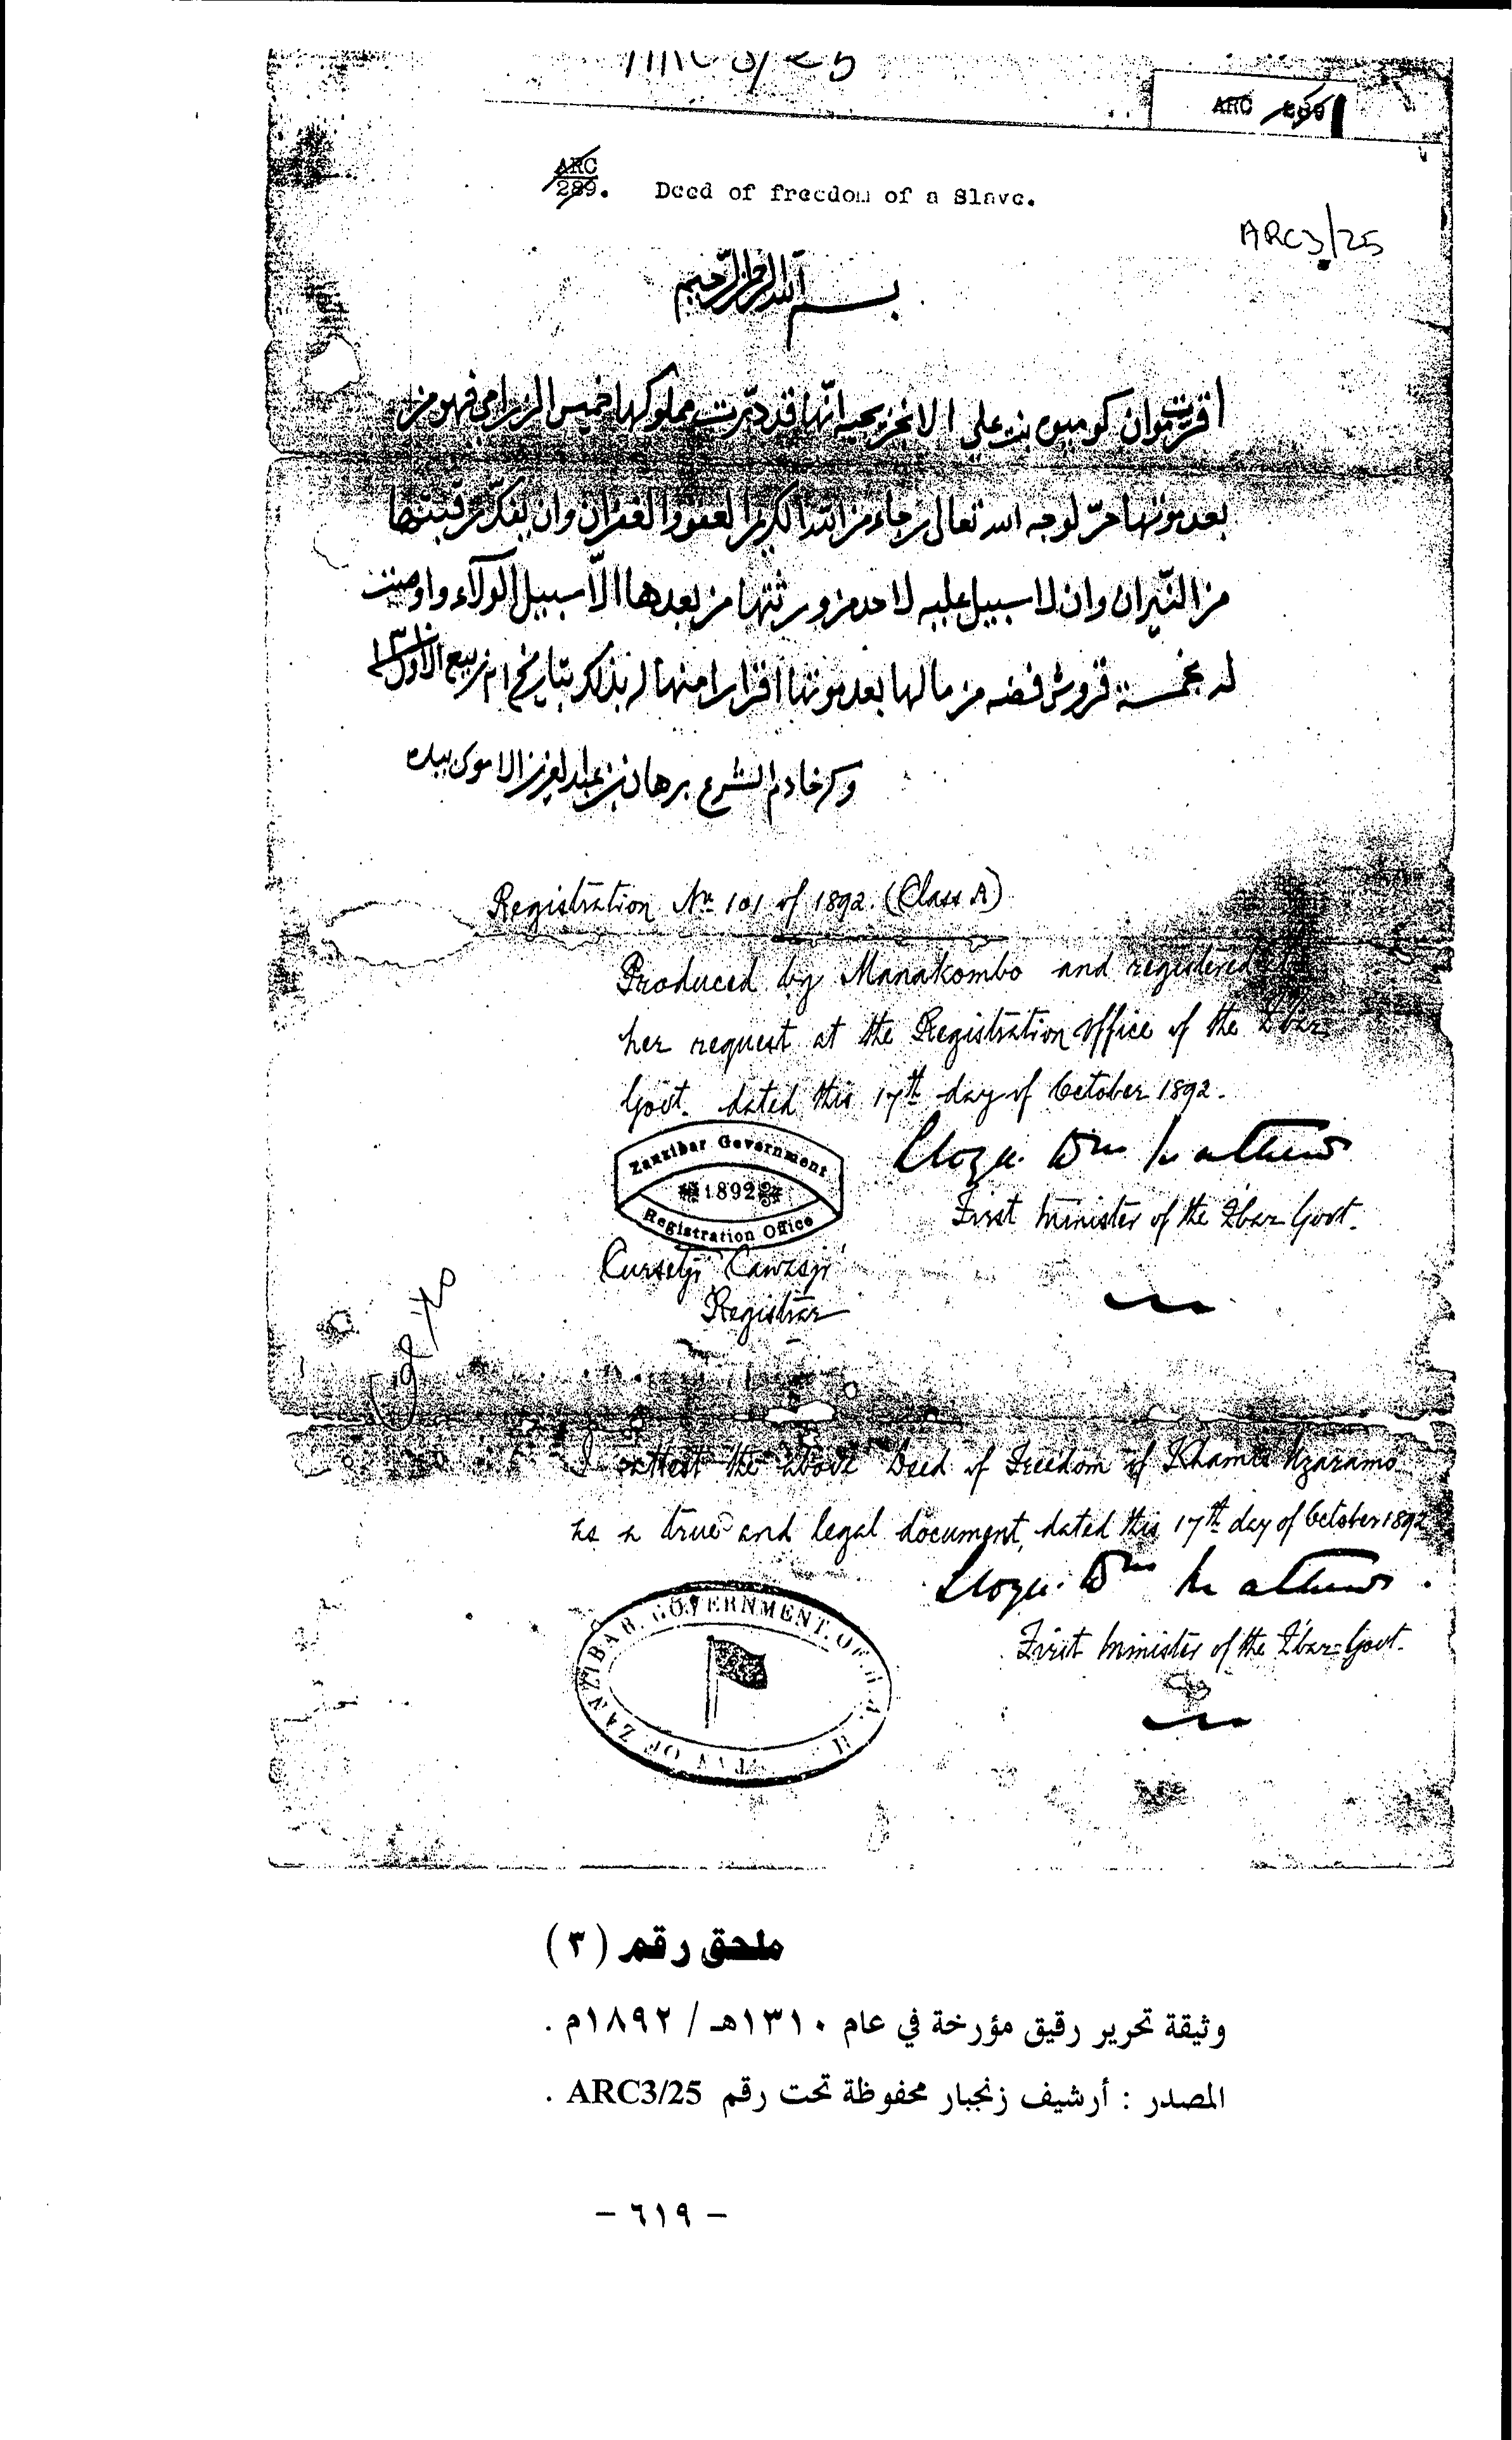 ARC3/25
ARC 289
ARC
289. Deed of freedom of a Slave.
ARC3/25
بسم الله الرحمن الرحيم
أقرت موان كومبوه بنت علي الانجزيجيه انّها قد دبّرت مملوكها خميس الزرامي فهو من
بعد موتها حرّ لوجه الله تعالى رجاء من الله الكريم العفو والغفران وان يفكّ رقبتها
من النّيران وان لا سبيل عليه لاحد من ورثتها من بعدها الّا سبيل الولاء واوصت
له بخمسة قروش فضه من مالها بعد موتها اقرارا منها له بذلك بتاريخ ربيع الاول ١٣١٠
وكتبه خادم الشرع برهان بن عبد العزيز الاموي بيده
Registration No 101 of 1892. (Class A)
Produced by Manakombo and registered at
her request at the Registration Office of the Zbar
Govt. dated this 17th day of October 1892.
Zanzibar Government
1892
Registration Office
Lloyd Wm Mathews
First Minister of the Zbar Govt.
Cursetji Cawasji
Registrar
I attest the above Deed of Freedom of Khamis Mzaramo
as a true and legal document, dated this 17th day of October 1892
Lloyd Wm Mathews.
First Minister of the Zbar Govt.
GOVERNMENT OF H.H. OF ZANZIBAR
ملحق رقم (٣)
وثيقة تحرير رقيق مؤرخة في عام ١٣١٠هـ / ١٨٩٢م .
المصدر : أرشيف زنجبار محفوظة تحت رقم ARC3/25 .
– ٦١٩ –